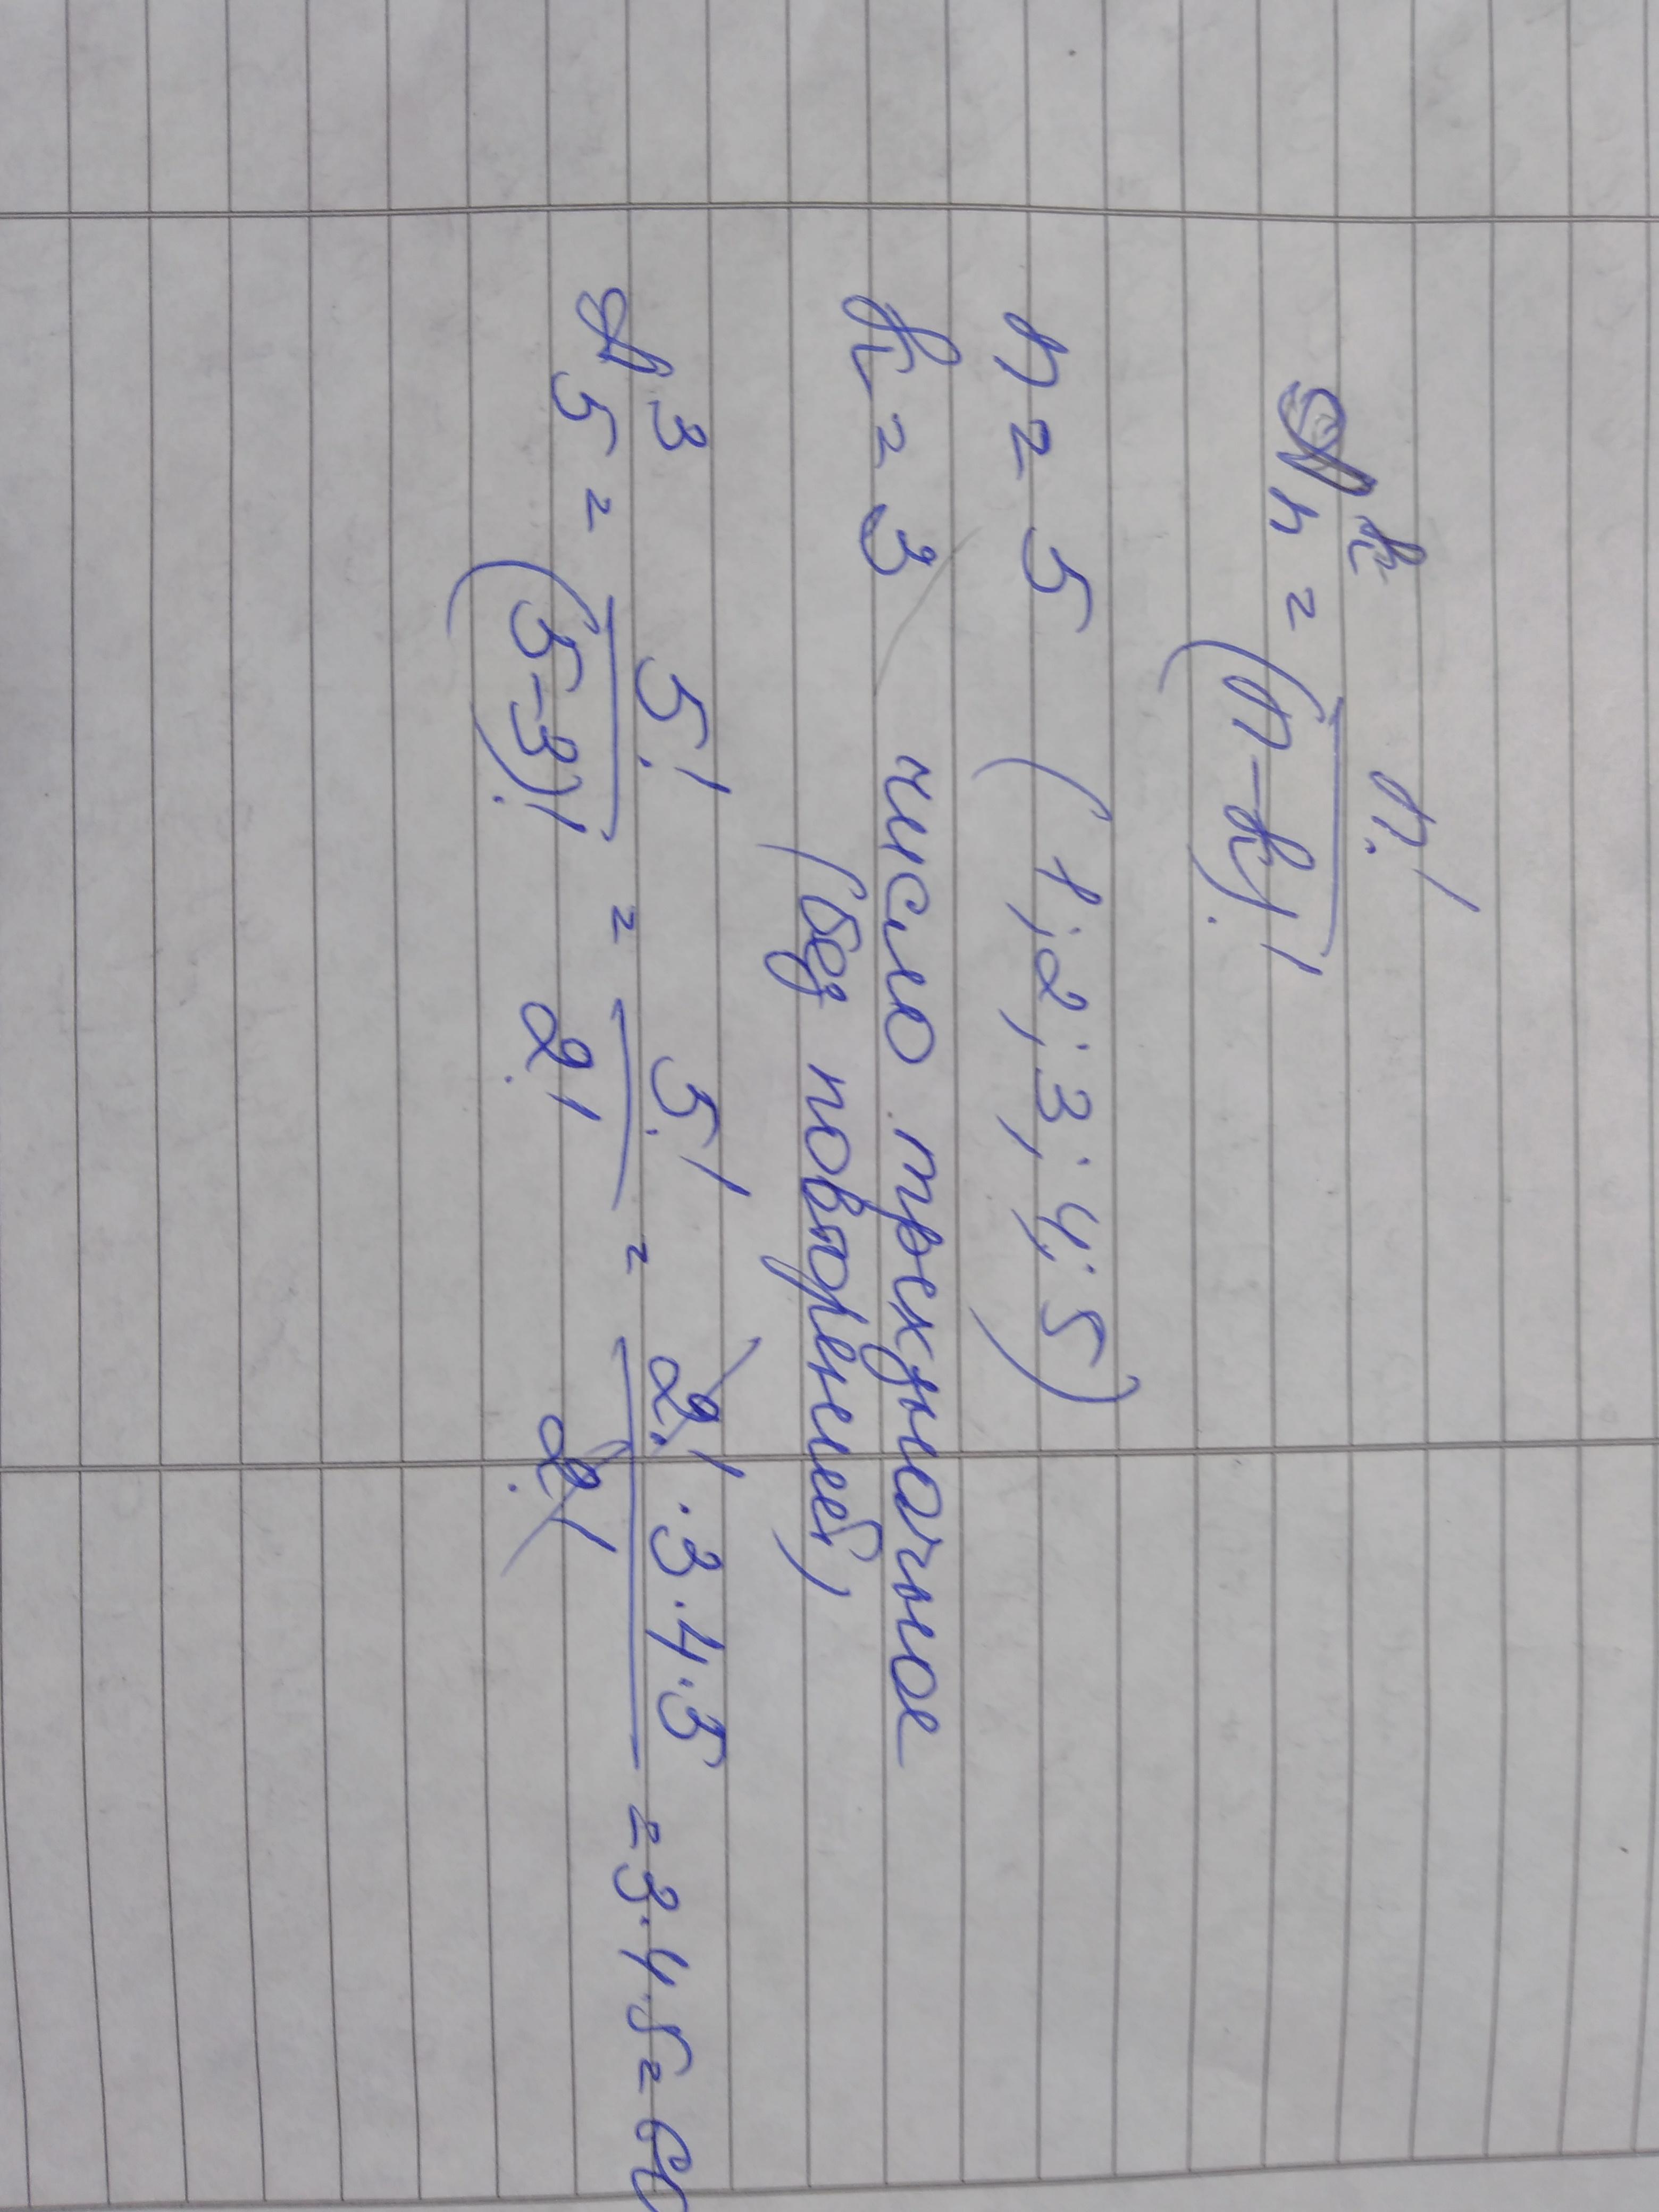 A_n^k = n! / (n-k)!
n = 5 (1; 2; 3; 4; 5)
k = 3 число трехзначное
(без повторений)
A_5^3 = 5! / (5-3)! = 5! / 2! = 2! · 3 · 4 · 5 / 2! = 3 · 4 · 5 = 60